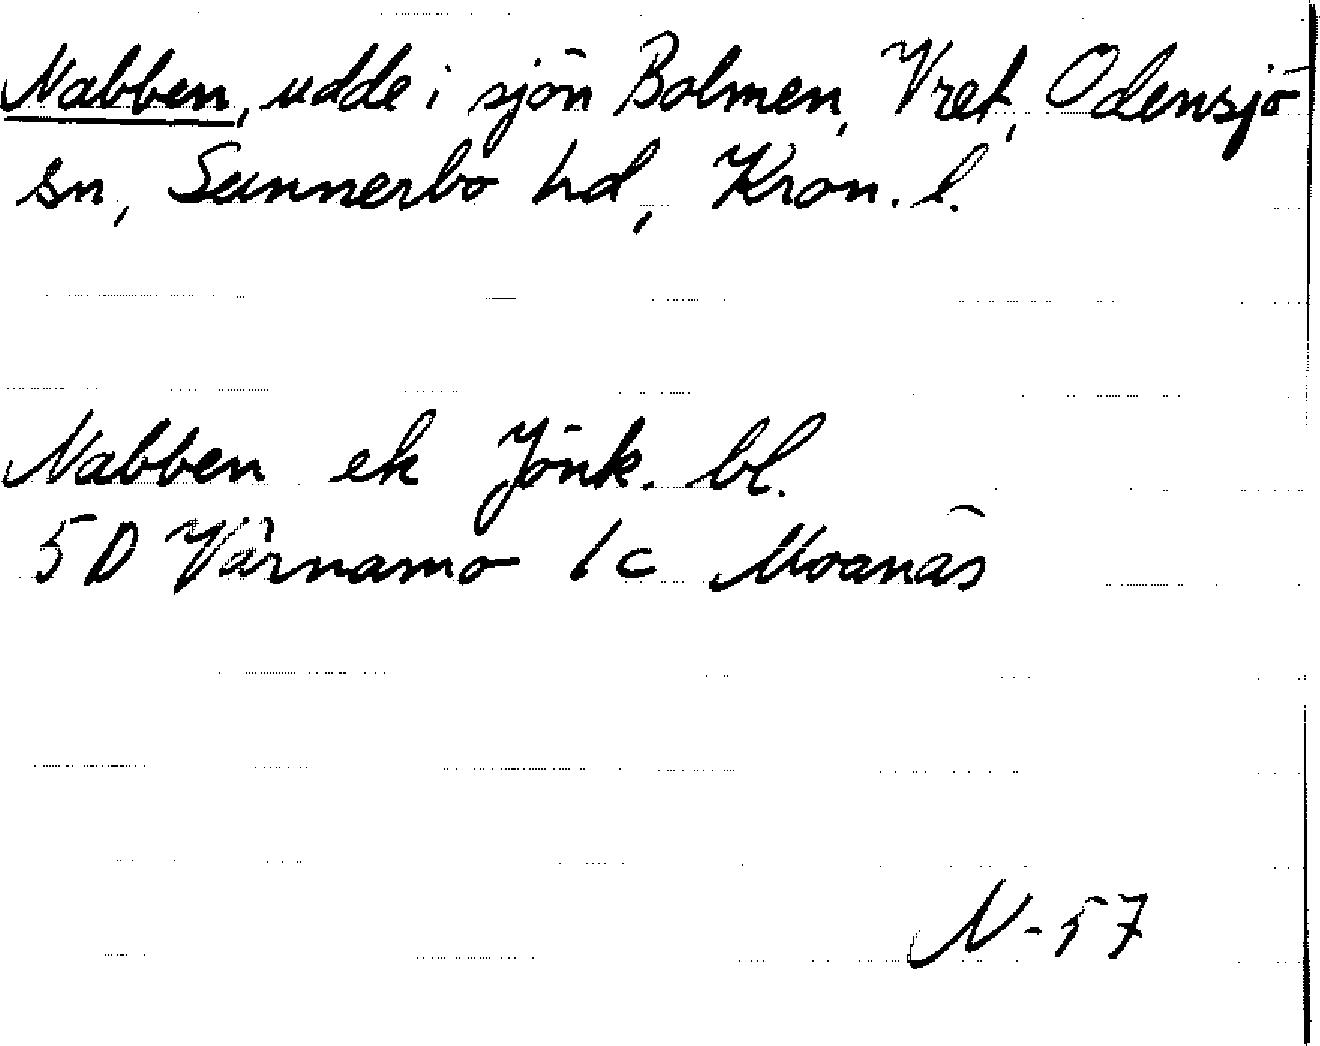 Nabben, udde i sjön Bolmen, Vret, Odensjö
sn, Sunnerbo hd, Kron. l.
Nabben ek Jönk. bl.
5D Värnamo 1c Moanäs
N-57